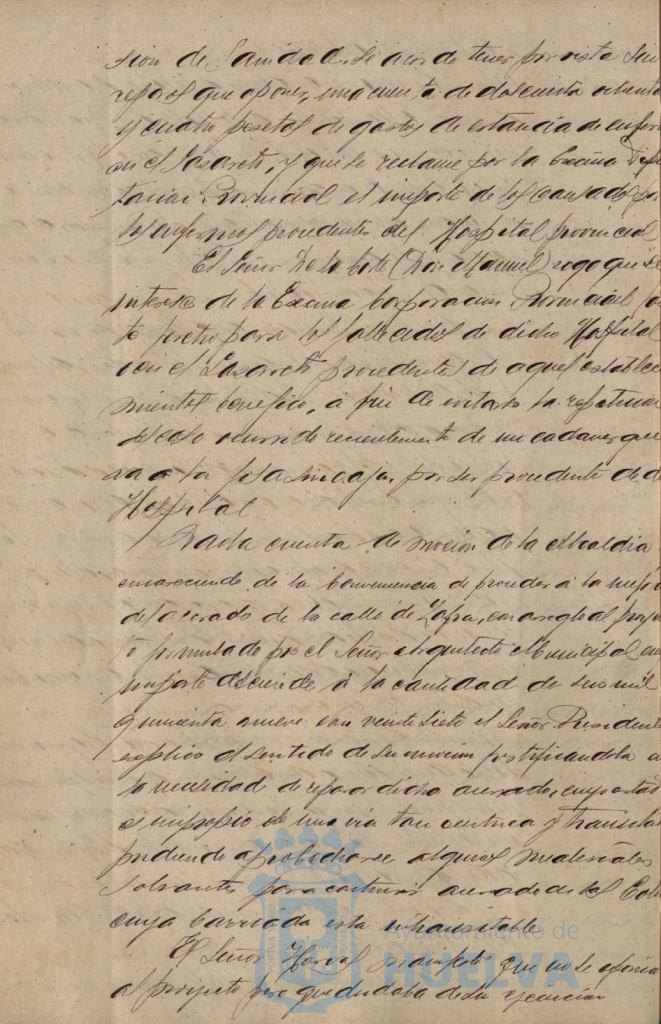 sion de Sanidad, se acorde tener por vista sin
reparos que oponer, una cuenta de doscienta ochenta
y cuatro pesetas de gastos de estancia de enfer
en el Lazareto, y que se reclame por la Excma Dipu
tacion Provincial el importe de los causados por
los enfermos procedentes del Hospital provincial
El Señor De la Corte (Don Manuel) rogo que se
interese de la Excma Corporacion Provincial
para los fallecidos de dicho Hospital
o en el Lazareto procedentes de aquel estableci
miento benefico, á fin de evitar la repeticion
del caso ocurrido recientemente de un cadaver que
va a la fosa sin caja, por ser procedente de
Hospital
Dada cuenta de mocion de la Alcaldia
encareciendo de la conveniencia de proceder á la mejora
del acerado de la calle de Zafra, con arreglo al proyec
to formulado por el Señor Arquitecto Municipal cuyo
importe asciende á la cantidad de seis mil
quinienta nueve con veinte siete el Señor Presidente
explico el sentido de su mocion justificandola en
la necesidad de reparar dicho acerado, cuyo estado
es impropio de una via tan centrica y transitada
pudiendo aprobecharse algunos materiales
sobrantes para construir acerado de
cuya barriada esta intransitable
El Señor manifesto que no se oponia
al proyecto pero que dudaba de su ejecucion
Ayuntamiento de
HUELVA